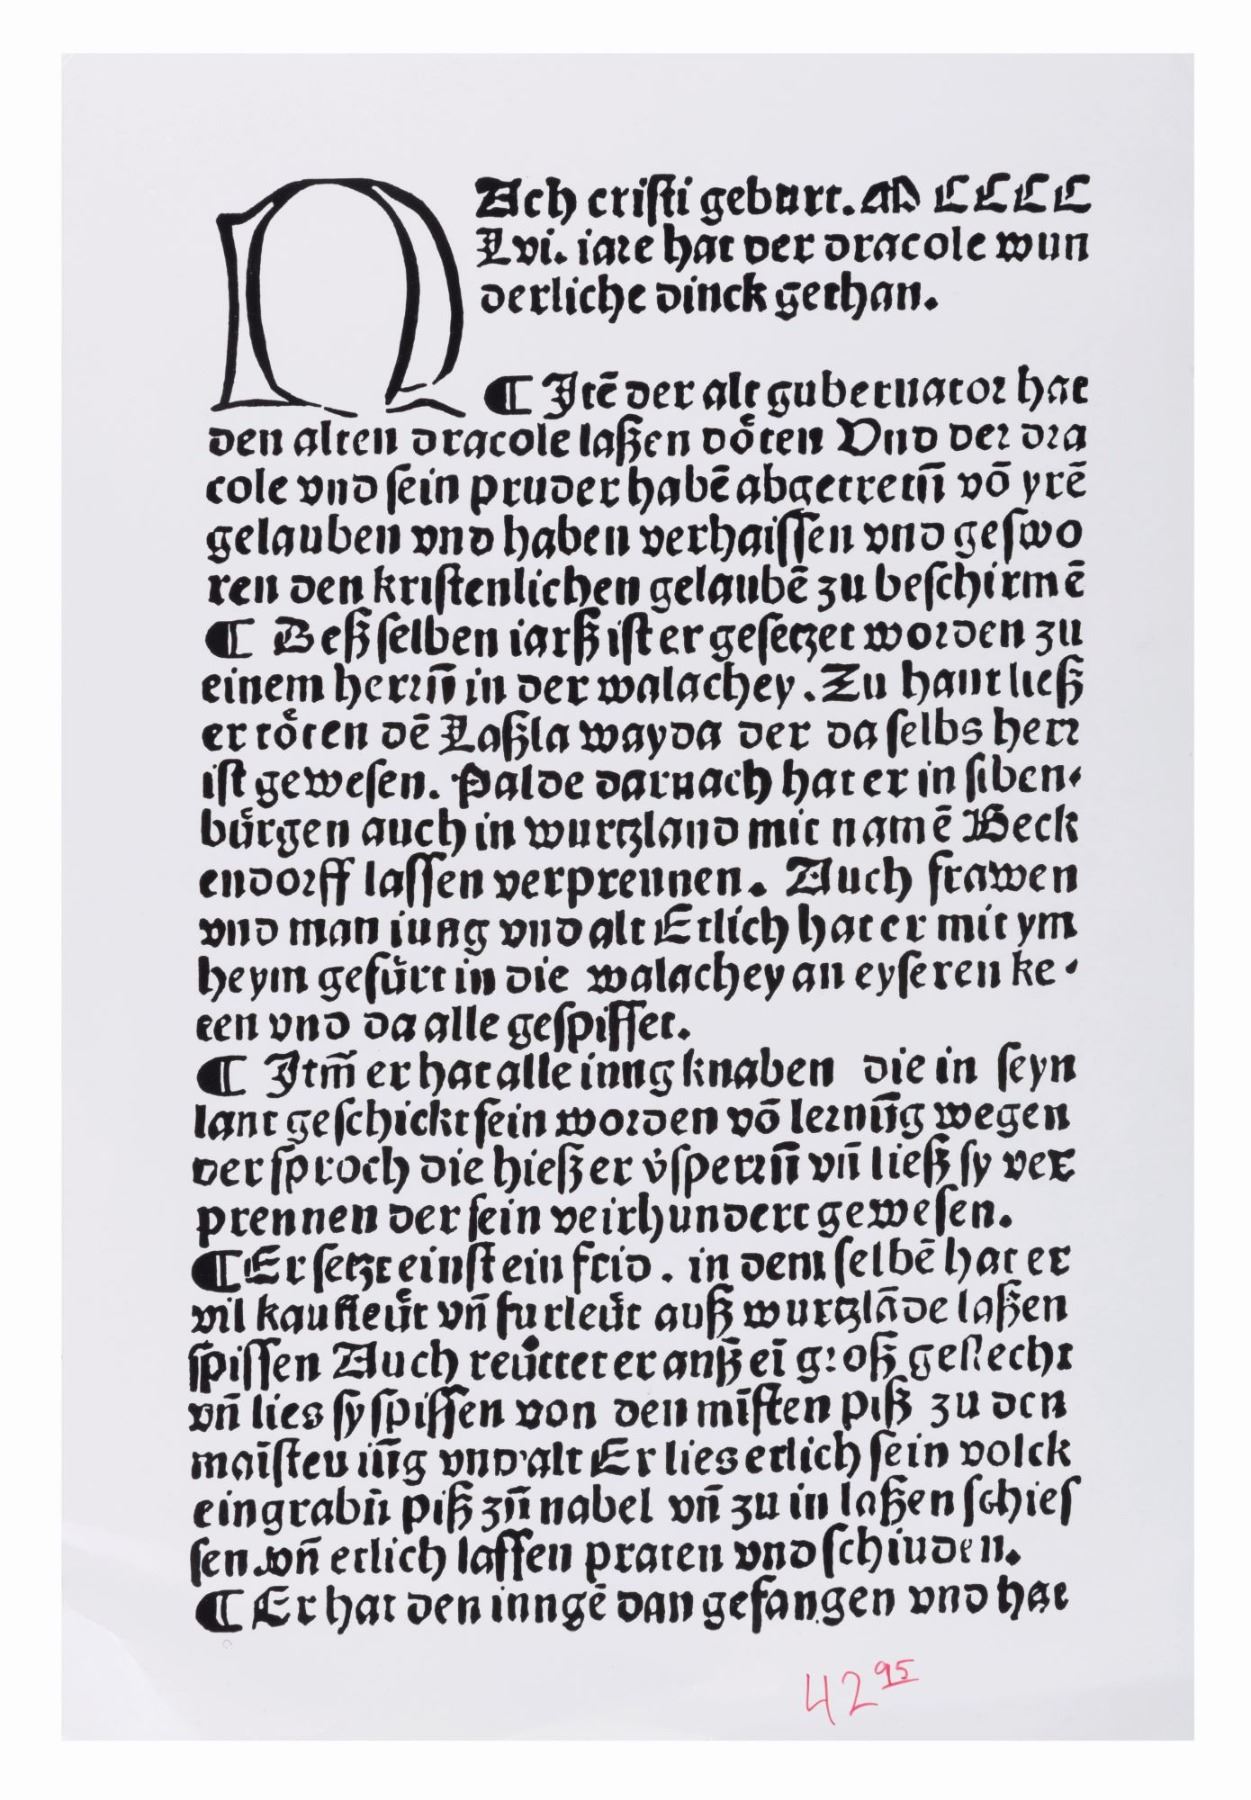 NAch criſti geburt. M CCCC
Lvi. iare hat der dracole wun
derliche dinck gethan.
¶ Jtē der alt gubernator hat
den alten dracole laßen doͤten Vnd der dra
cole vnd ſein pruder habē abgetretn̄ vō yrē
gelauben vnd haben verhaiſſen vnd geſwo
ren den kriſtenlichen gelaubē zu beſchirmē
¶ Deß ſelben iarß iſt er geſetzet worden zu
einem herrn̄ in der walachey. Zu hant ließ
er toͤten dē Laßla wayda der da ſelbs herr
iſt geweſen. Palde darnach hat er in ſiben⸗
buͤrgen auch in wurtzland mit namē Beck
endorff laſſen verprennen. Auch frawen
vnd man iung vnd alt Etlich hat er mit ym
heym gefuͤrt in die walachey an eyſeren ke⸗
ten vnd da alle geſpiſſet.
¶ Jtm̄ er hat alle inng knaben die in ſeyn
lant geſchickt ſein worden vō lernūg wegen
der ſproch die hieß er v̓ſperrn̄ vn̄ ließ ſy ver
prennen der ſein veirhundert geweſen.
¶ Er ſetzt einſt ein frid. in dem ſelbē hat er
vil kaufleuͤt vn̄ furleuͤt auß wurtzlāde laßen
ſpiſſen Auch reuͤttet er anß eī groß geſlecht
vn̄ lies ſy ſpiſſen von den mīſten piß zu den
maīſten iūg vnd alt Er lies etlich ſein volck
eingrabn̄ piß zū nabel vn̄ zu in laßen ſchieſ
ſen. vn̄ etlich laſſen praten vnd ſchinden.
¶ Er hat den inngē dan gefangen vnd hat
42 95